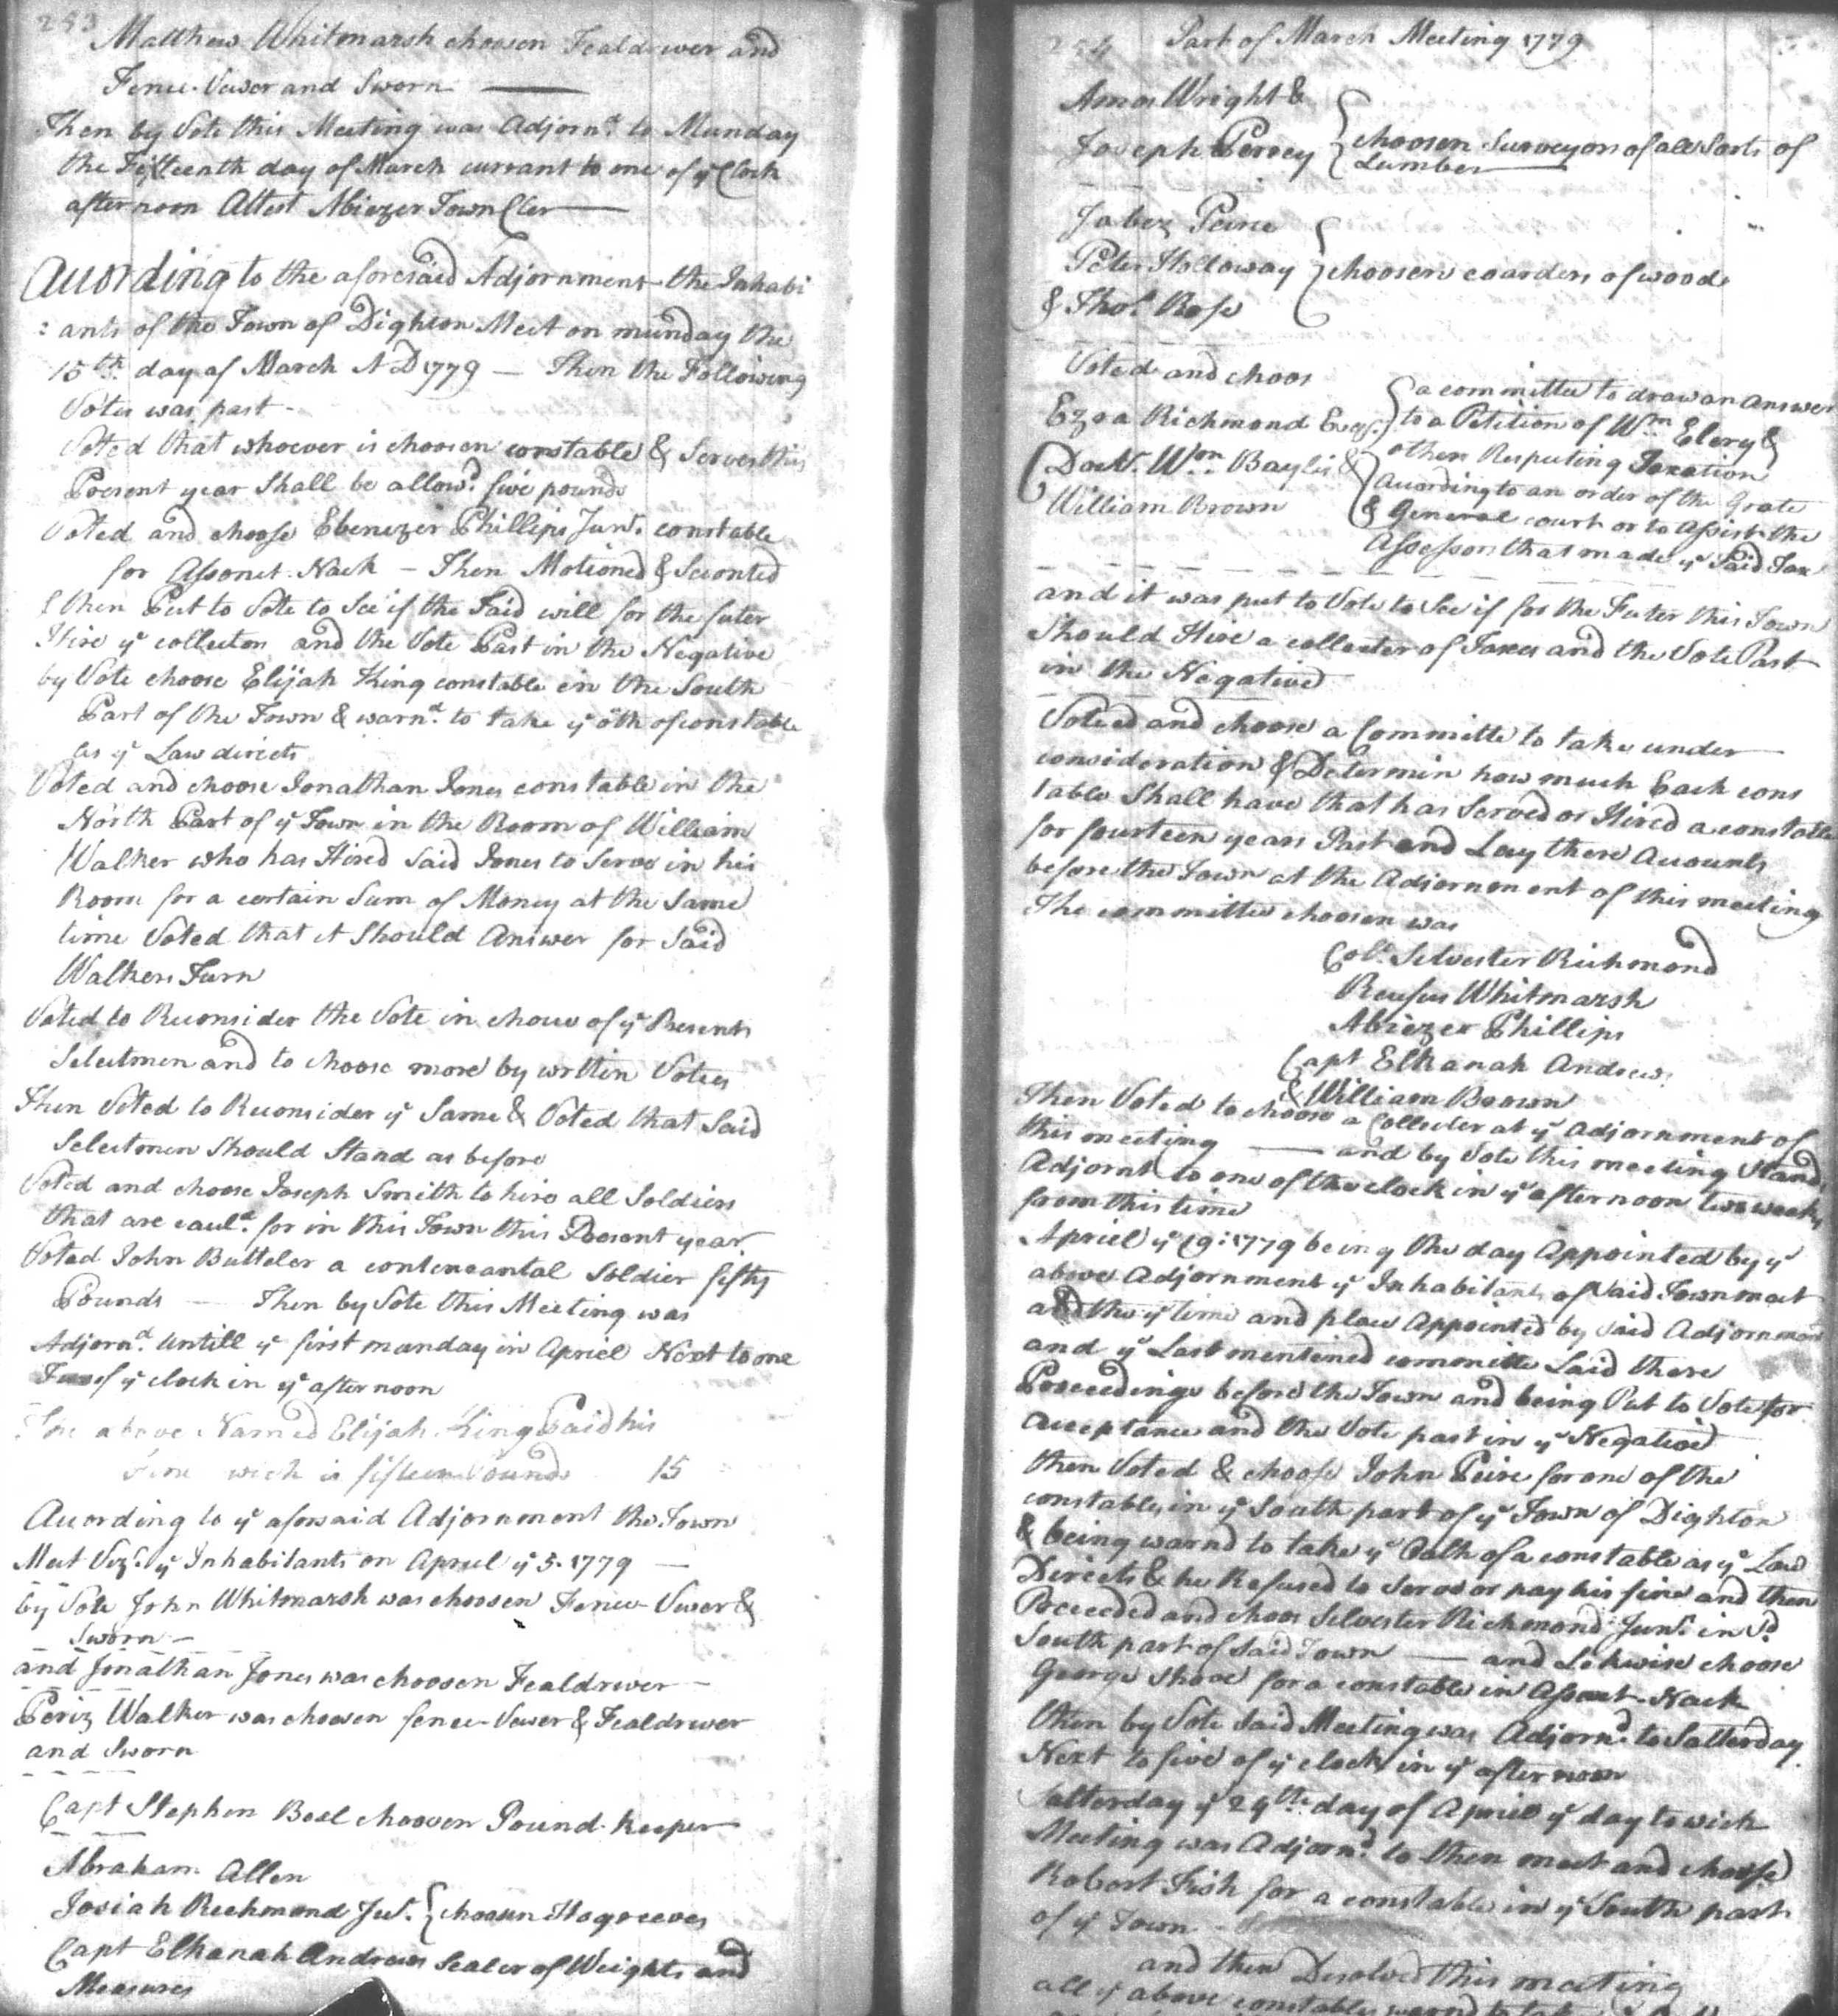 253
Matthew Whitmarsh choosen Fealdriver and
Fence-Vewer and Sworn
Then by Vote this Meeting was Adjornd. to Munday
the Fifteenth day of March currant to one of ye Clock
afternoon Attest Abiezer Town Cler
According to the aforesaid Adjornment the Inhabi
: ants of the Town of Dighton Meet on munday the
15th day of March A D 1779 — Then the Following
Votes was past -
Voted that whoever is choosen constable & Serves this
Present year Shall be allowd. five pounds
Voted and choose Ebenezer Phillips Junr. constable
for Assonet Nack - Then Motioned & Seconted
& then Put to Vote to See if the Said will for the futer
Hire ye collectors and the Vote Past in the Negative
by Vote choose Elijah King constable in the South
Part of the Town & warnd. to take ye oth of constable
as ye Law directs
Voted and choose Jonathan Jones constable in the
North Part of ye Town in the Room of William
Walker who has Hired Said Jones to Serve in his
Room for a certain Sum of Money at the Same
time Voted that it Should Answer for Said
Walkers Turn
Voted to Reconsider the Vote in choice of ye Present
Selectmen and to choose more by written Votes
Then Voted to Reconsider ye Same & Voted that Said
Selectmen Should Stand as before
Voted and choose Joseph Smith to hire all Soldiers
that are cauld. for in this Town this Present year
Voted John Butteler a conteneantal Soldier fifty
Pounds — Then by Vote this Meeting was
Adjornd. untill ye first monday in Apriel Next to one
of ye clock in ye afternoon
The above Named Elijah King Paid his
Fine wich is fifteen Pounds 15
According to ye aforsaid Adjornment the Town
Meet Vizt. ye Inhabitants on Apriel ye 5. 1779 —
by Vote John Whitmarsh was choosen Fence-Vewer &
Sworn -
and Jonathan Jones was choosen Fealdriver -
Periz Walker was choosen fence-Vewer & Fealdriver
and Sworn
Capt Stephen Beal choosen Pound-keeper
Abraham Allen
Josiah Richmond Jur. } choosen Hogreeves
Capt Elkanah Andrews Sealer of Weights and
Measures
254 Part of March Meeting 1779
Amos Wright &
Joseph Percey } choosen Surveyors of all Sorts of
Lumber
Jabez Peirce
Peter Holloway } choosen coarders of wood
& Thos. Rose
Voted and choos
Ezra Richmond Esqr.
Doctr. Wm Baylis &
William Brown
a committe to draw an answer
to a Petition of Wm Elery &
others Respecting Taxation
According to an order of the Grate
& General court or to Assist the
Assessors that made ye Said Tax
and it was put to Vote to See if for the Futer this Town
Should Hire a collecter of Taxes and the Vote Past
in the Negative
Voted and choose a Committe to take under
consideration & Determin how much Each cons
table Shall have that has Served or Hired a constable
for fourteen years Past and Lay there Accounts
before the Town at the Adjornment of this meeting
The committee choosen was
Coll. Selvester Richmond
Reufus Whitmarsh
Abiezer Phillips
Capt Elkanah Andrews
& William Brown
Then Voted to choose a Collecter at ye adjornment of
this meeting — and by Vote this meeting Stands
Adjornt to one of the clock in ye afternoon two weeks
from this time
Apriel ye 19: 1779 being the day Appointed by ye
above Adjornment ye Inhabitants of Said Town meet
at the ye time and place Appointed by Said Adjornment
and ye Last mentined committe Laid there
Proceedings before the Town and being Put to Vote for
acceptance and the Vote past in ye Negative
then Voted & choose John Peirce for one of the
constables in ye South part of ye Town of Dighton
& being warnd to take ye Oath of a constable as ye Law
Directs & he Refused to Serve or pay his fine and then
Proceeded and choos Selvester Richmond Junr. in Sd
South part of Said Town — and Lekwise choose
George Shove for a constable in Assonet-Nack
then by Vote Said Meeting was Adjornd. to Satterday
Next to five of ye clock in ye afternoon
Satterday ye 24th day of Apriel ye day to wich
Meeting was Adjornd. to then meet and choose
Robert Fish for a constable in ye South part
of ye Town
and then Desolved this meeting
all ye above constables warnd to take